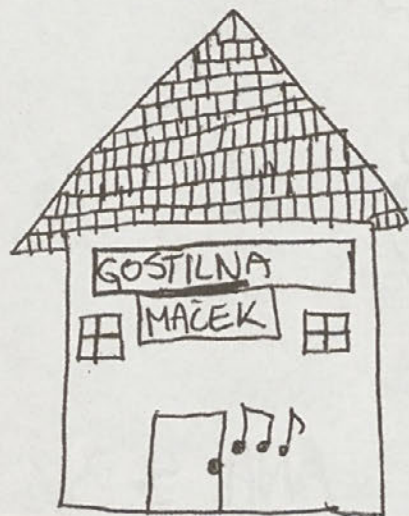 GOSTILNA
MAČEK